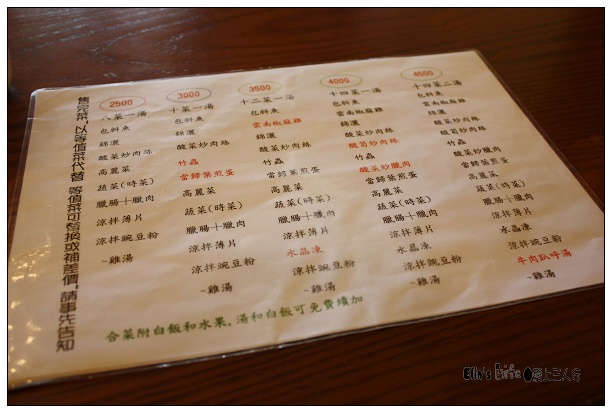 售完菜，以等值菜代替 等值菜可替換或補差價，請事先告知
2500
八菜一湯
包料魚
錦灑
酸菜炒肉絲
高麗菜
蔬菜(時菜)
臘腸+臘肉
涼拌薄片
涼拌豌豆粉
~雞湯
3000
十菜一湯
包料魚
錦灑
酸菜炒肉絲
竹蟲
當歸葉煎蛋
高麗菜
蔬菜(時菜)
臘腸+臘肉
涼拌薄片
涼拌豌豆粉
~雞湯
3500
十二菜一湯
包料魚
雲南椒麻雞
錦灑
酸菜炒肉絲
竹蟲
當歸葉煎蛋
高麗菜
蔬菜(時菜)
臘腸+臘肉
涼拌薄片
水晶凍
涼拌豌豆粉
~雞湯
4000
十四菜一湯
包料魚
雲南椒麻雞
錦灑
酸筍炒肉絲
竹蟲
酸菜炒臘肉
當歸葉煎蛋
高麗菜
蔬菜(時菜)
臘腸+臘肉
涼拌薄片
水晶凍
涼拌豌豆粉
~雞湯
4500
十四菜二湯
包料魚
雲南椒麻雞
錦灑
酸菜炒肉絲
竹蟲
酸菜炒臘肉
當歸葉煎蛋
高麗菜
蔬菜(時菜)
臘腸+臘肉
涼拌薄片
水晶凍
涼拌豌豆粉
牛肉趴呼湯
~雞湯
合菜附白飯和水果，湯和白飯可免費續加
Elin's Life 愛上三人行